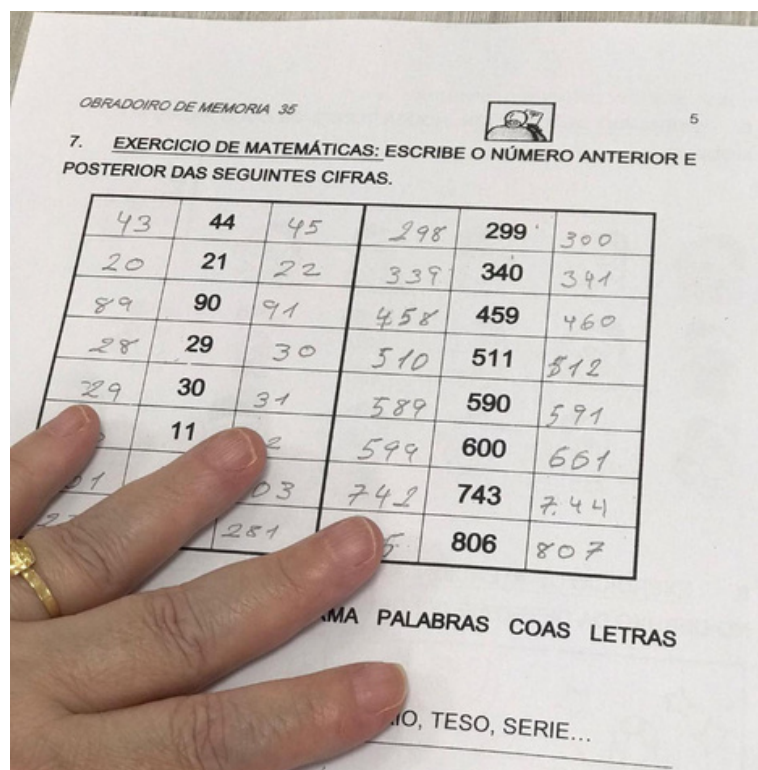 OBRADOIRO DE MEMORIA 35
5
7. EXERCICIO DE MATEMÁTICAS: ESCRIBE O NÚMERO ANTERIOR E
POSTERIOR DAS SEGUINTES CIFRAS.
43 44 45 298 299 300
20 21 22 339 340 341
89 90 91 458 459 460
28 29 30 510 511 512
29 30 31 589 590 591
11 2 599 600 661
01 03 742 743 7.44
281 5 806 807
PALABRAS COAS LETRAS
TESO, SERIE...